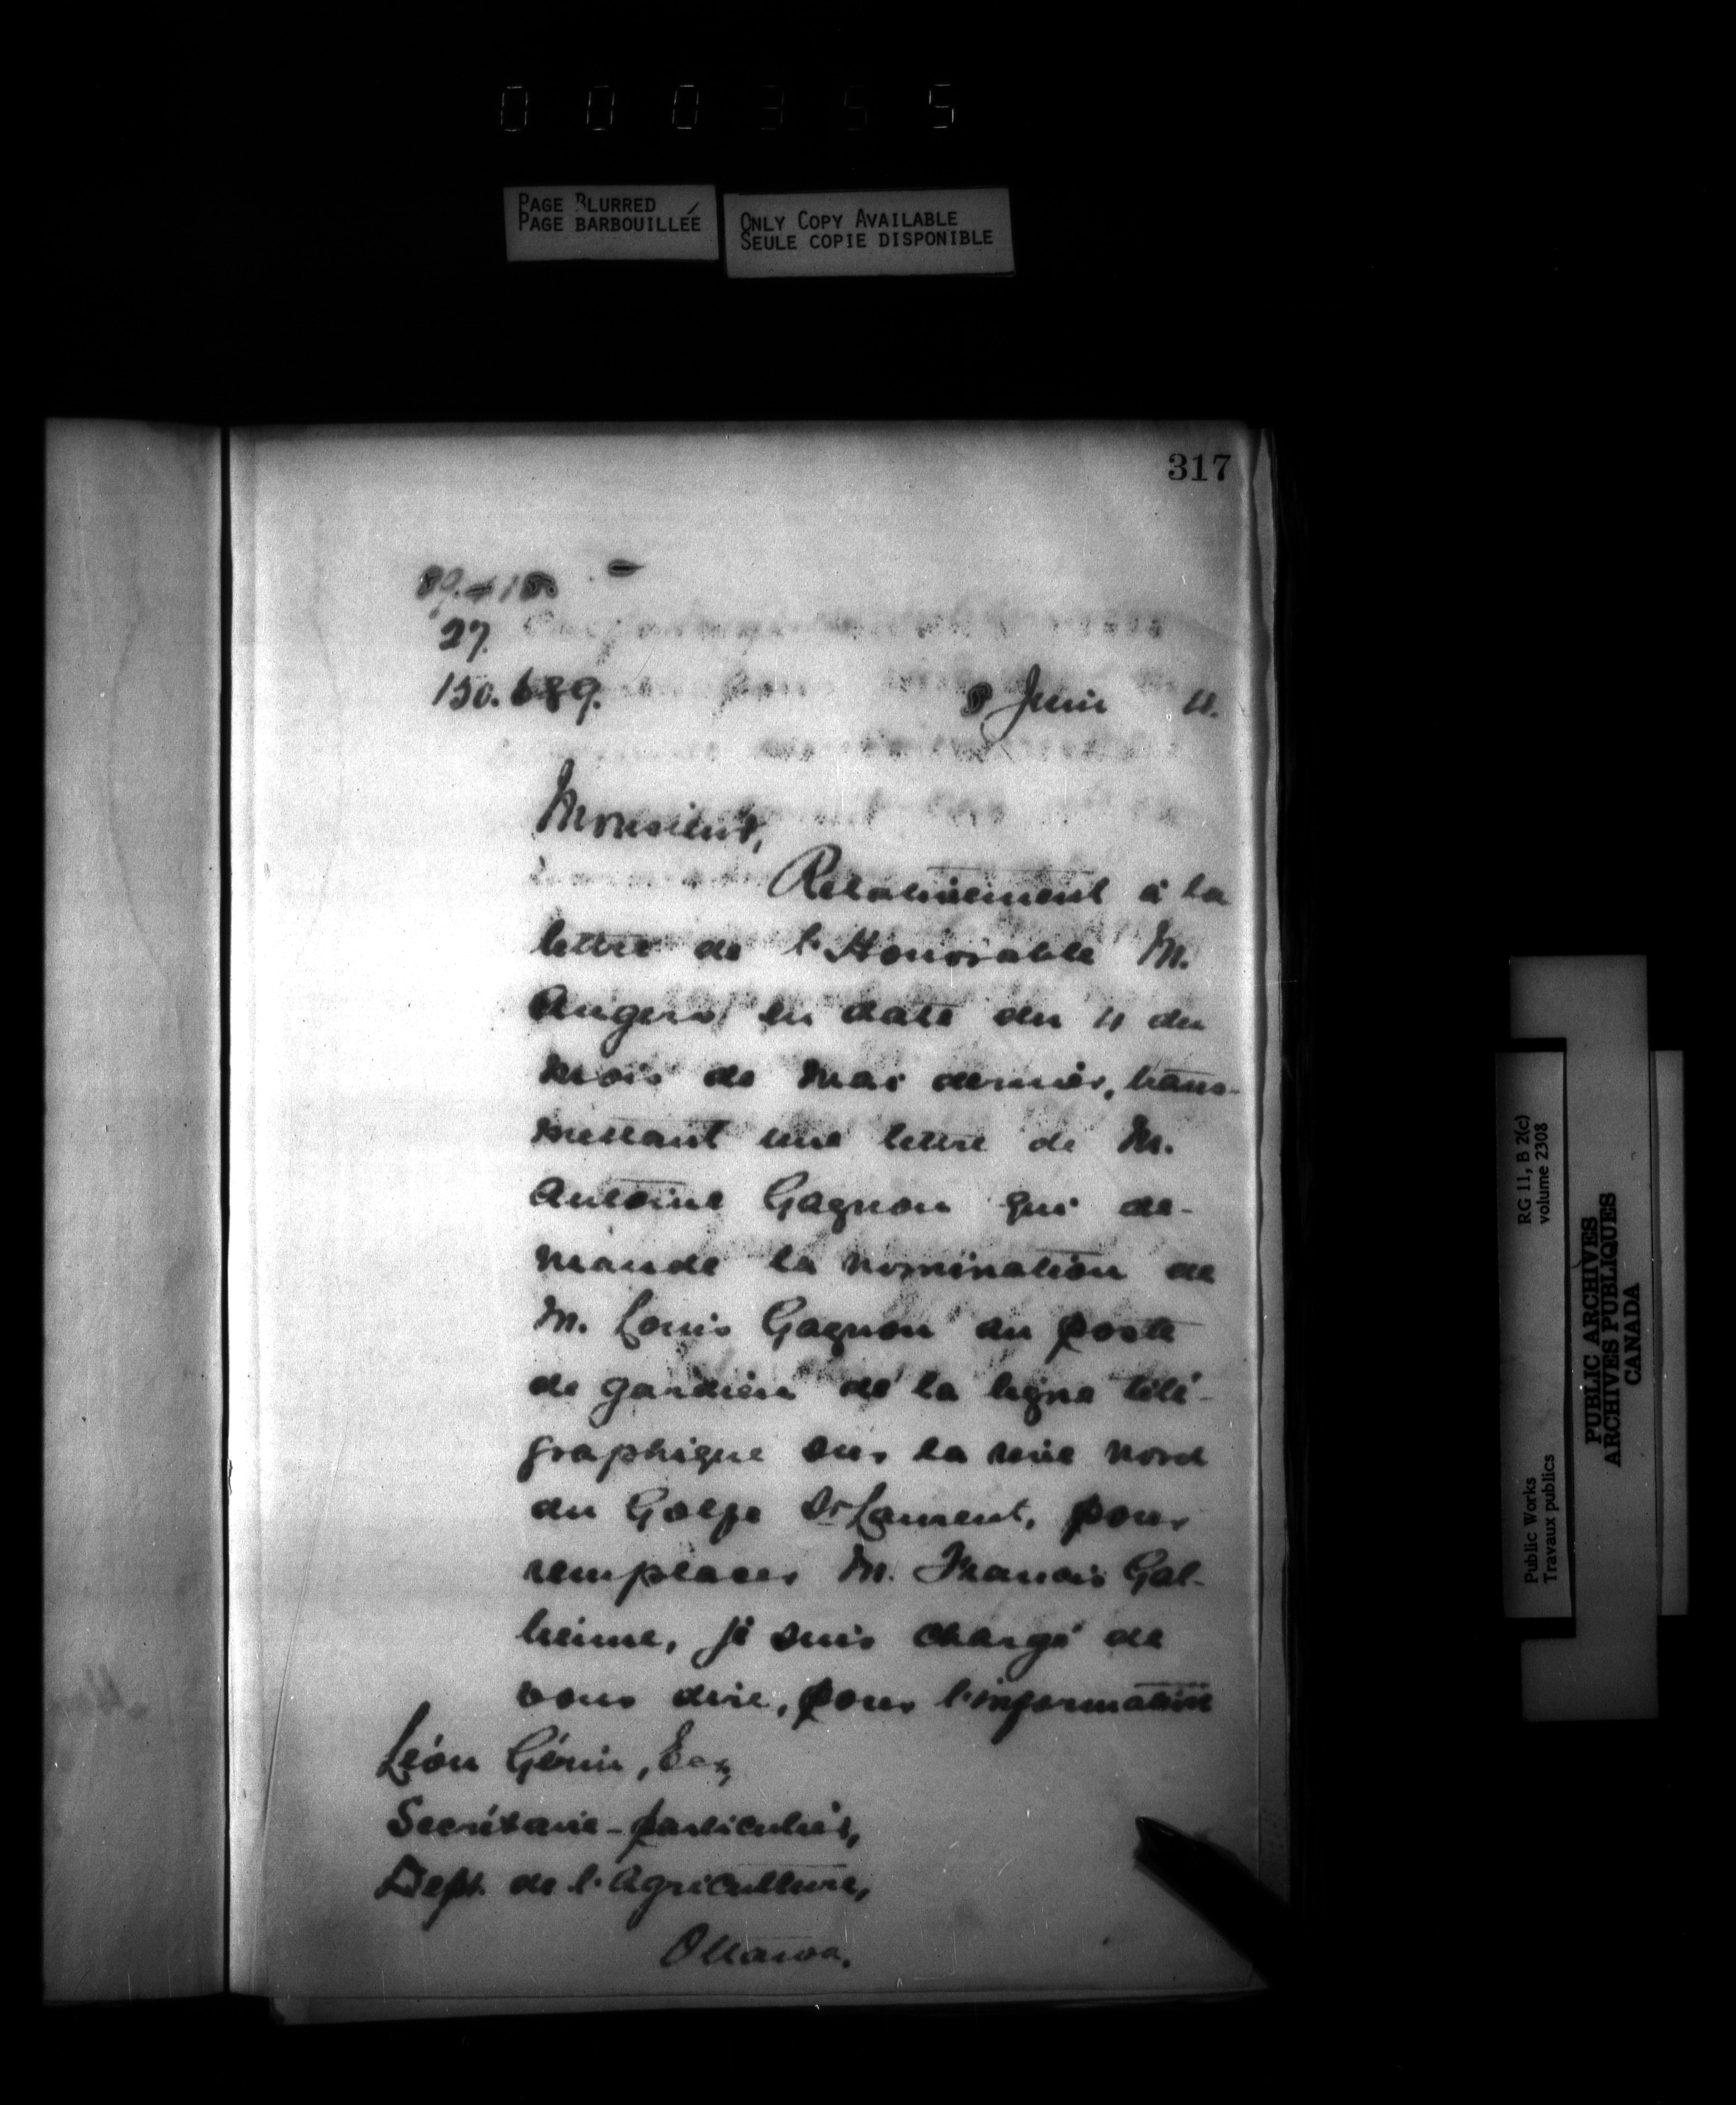 000355
PAGE BLURRED
PAGE BARBOUILLÉE
ONLY COPY AVAILABLE
SEULE COPIE DISPONIBLE
317
27.
150.689.
8 Juin
Monsieur,
Relativement à la
lettre de l'Honorable M.
Angers en date du 11 du
mois de mai dernier, trans-
mettant une lettre de M.
Antoine Gagnon qui de-
mande la nomination de
M. Louis Gagnon au poste
de gardien de la ligne télé-
graphique sur la rive nord
du Golfe St Laurent, pour
remplacer M. Francis Gal-
lienne, je suis chargé de
vous dire, pour l'information
Léon Gérin, Ecr,
Secrétaire-particulier,
Dept. de l'Agriculture,
Ottawa.
RG 11, B 2(c)
volume 2308
Public Works
Travaux publics
PUBLIC ARCHIVES
ARCHIVES PUBLIQUES
CANADA